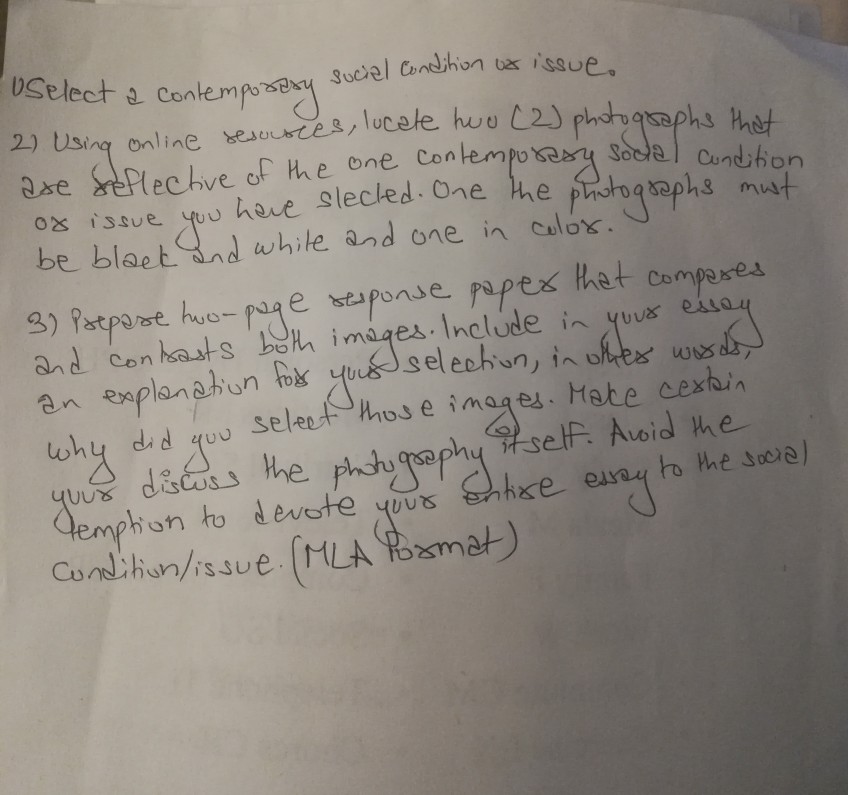 1) Select a contemporary social condition or issue.
2) Using online resources, locate two (2) photographs that
are reflective of the one contemporary social condition
or issue you have slected. One the photographs must
be black and white and one in color.
3) Prepare two-page response paper that compares
and contrasts both images. Include in your essay
an explanation for your selection, in other words,
why did you select those images. Make certain
your discuss the photography itself. Avoid the
temption to devote your entire essay to the social
condition/issue. (MLA Format)